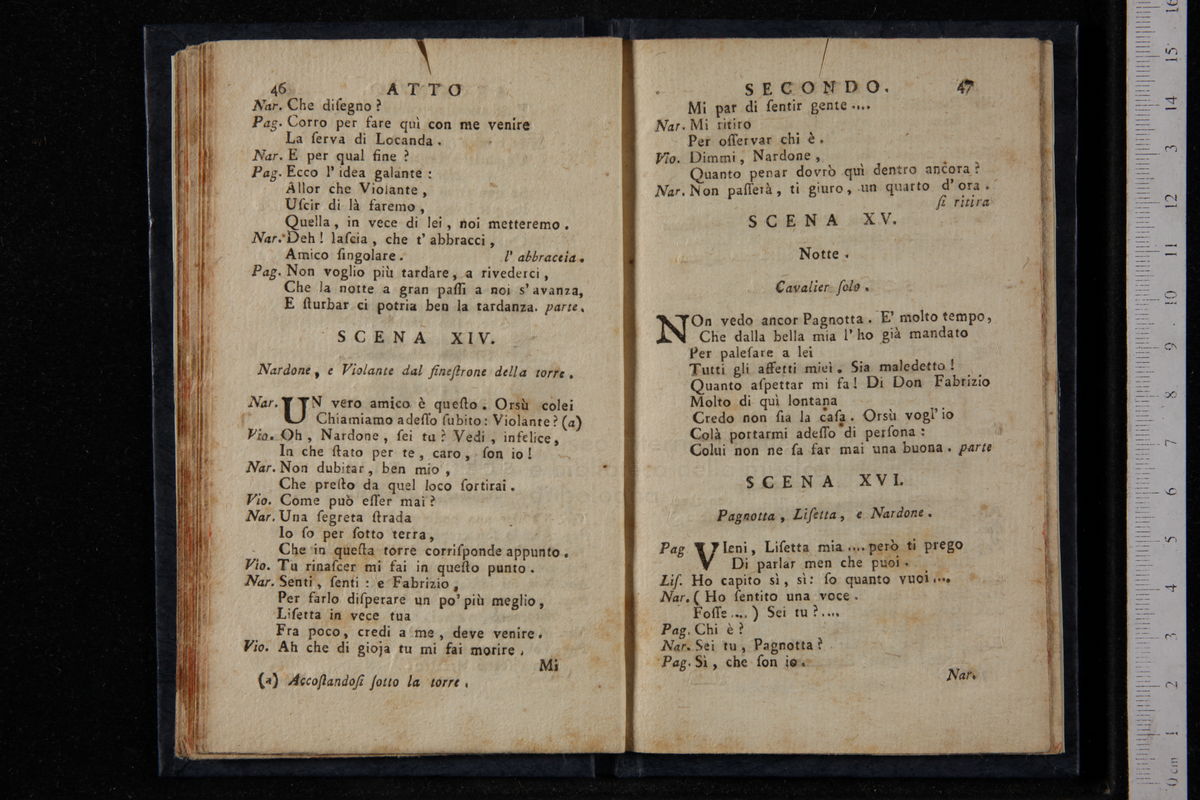 46 ATTO
Nar. Che diſegno ?
Pag. Corro per fare quì con me venire
La ſerva di Locanda .
Nar. E per qual fine ?
Pag. Ecco l' idea galante :
Allor che Violante ,
Uſcir di là faremo ,
Quella , in vece di lei , noi metteremo .
Nar. Deh ! laſcia , che t' abbracci ,
Amico ſingolare . l' abbraccia .
Pag. Non voglio più tardare , a rivederci ,
Che la notte a gran paſſi a noi s' avanza,
E ſturbar ci potria ben la tardanza. parte.
SCENA XIV.
Nardone , e Violante dal fineſtrone della torre .
Nar. UN vero amico è queſto . Orsù colei
Chiamiamo adeſſo ſubito : Violante ? (a)
Vio. Oh , Nardone , ſei tu ? Vedi , infelice,
In che ſtato per te , caro , ſon io !
Nar. Non dubitar , ben mio ,
Che preſto da quel loco ſortirai .
Vio. Come può eſſer mai ?
Nar. Una ſegreta ſtrada
Io ſo per ſotto terra,
Che in queſta torre corriſponde appunto .
Vio. Tu rinaſcer mi fai in queſto punto .
Nar. Senti , ſenti : e Fabrizio ,
Per farlo diſperare un po' più meglio ,
Liſetta in vece tua
Fra poco , credi a me , deve venire .
Vio. Ah che di gioja tu mi fai morire .
Mi
(a) Accoſtandoſi ſotto la torre .
SECONDO. 47
Mi par di ſentir gente ....
Nar. Mi ritiro
Per oſſervar chi è .
Vio. Dimmi , Nardone ,
Quanto penar dovrò quì dentro ancora ?
Nar. Non paſſerà , ti giuro , un quarto d' ora .
ſi ritira
SCENA XV.
Notte .
Cavalier ſolo .
NOn vedo ancor Pagnotta . E' molto tempo ,
Che dalla bella mia l' ho già mandato
Per paleſare a lei
Tutti gli affetti miei . Sia maledetto !
Quanto aſpettar mi fa ! Di Don Fabrizio
Molto di quì lontana
Credo non ſia la caſa . Orsù vogl' io
Colà portarmi adeſſo di perſona :
Colui non ne ſa far mai una buona . parte
SCENA XVI.
Pagnotta , Liſetta , e Nardone .
Pag VIeni , Liſetta mia .... però ti prego
Di parlar men che puoi .
Liſ. Ho capito sì , sì : ſo quanto vuoi ....
Nar. ( Ho ſentito una voce .
Foſſe .... ) Sei tu ? ....
Pag. Chi è ?
Nar. Sei tu , Pagnotta ?
Pag. Sì , che ſon io .
Nar.
0 cm 1 2 3 4 5 6 7 8 9 10 11 12 13 14 15 16